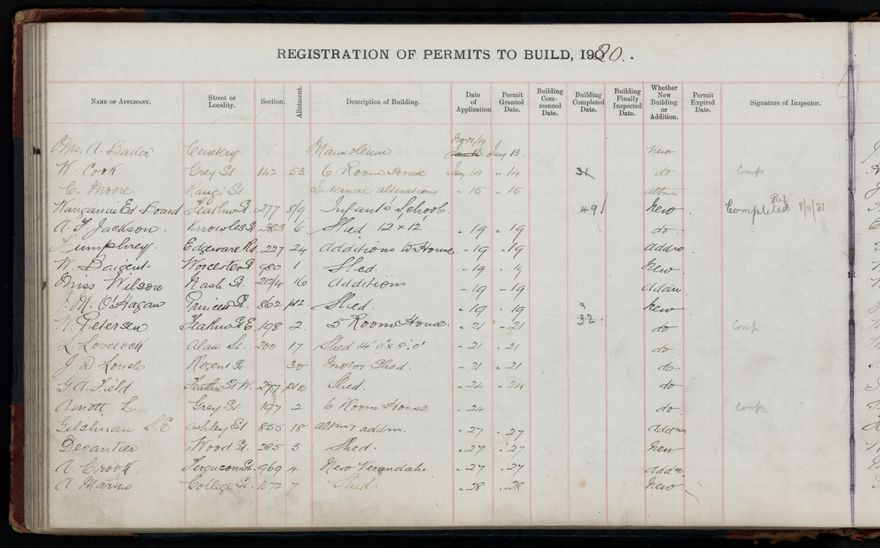 REGISTRATION OF PERMITS TO BUILD, 1920.
NAME OF APPLICANT. Street or Locality. Section. Allotment. Description of Building. Date of Application Permit Granted Date. Building Commenced Date. Building Completed Date. Building Finally Inspected Date. Whether New Building or Addition. Permit Expired Date. Signature of Inspector.
Mrs. A. Cemetery Mausoleum Jany 13. new
W. Cook Grey St 142 53 6 Room House Jany 14 " 14 31 do Comp
C. Moore Rangi St Internal alterations " 15 " 15
Wanganui Ed. Board 277 8/9 Infants School. 49 New Completed 8/11/21
A. F. Jackson. Knowles St 383 6 Shed 12 x 12 " 19 " 19 do
Humphrey. Edgeware Rd. 227 24 Additions to House " 19 " 19 Addns
W. Bargent Worcester St. 980 1 Shed. " 19 " 19 New
Miss Wilson Nash St 16 Additions " 19 " 19 Addn
O'Hagan Princess St. 862 Shed. " 19 " 19 New
Petersen 198 2 5 Room House. " 21 " 21 32 do Comp
L. Lovelock Alan St. 200 17 Shed " 21 " 21 do
J. D. Regent St 30 Motor Shed. " 21 " 21 do
G. A. Field St W. 277 Shed. " 24 " 24 do
Arnott L. Grey St. 197 2 6 Room House " 24 do Comp.
S. E. Ashley St 855 18 addn. " 27 " 27 Addn
Decantier Wood St. 285 5 Shed. " 27 " 27 New
A. Crook Ferguson St. 969 4 New Verandah. " 27 " 27 Addn
A. College St. 1072 7 Shed. " 28 " 28 New